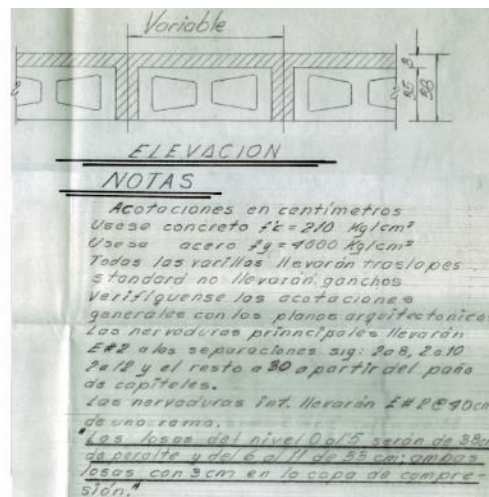 Variable
3
35
38
ELEVACION
NOTAS
Acotaciones en centímetros
Usese concreto f'c = 210 Kg/cm²
Usese acero fy = 4000 Kg/cm²
Todas las varillas llevarán traslapes
standard no llevarán ganchos
Verifíquense las acotaciones
generales con los planos arquitectonicos
Las nervaduras prinncipales llevarán
E#2 a las separaciones sig: 2a8, 2a10
2a12 y el resto a 30 a partir del paño
de capiteles.
Las nervaduras int. llevarán E#2@40cm
de una rama.
"Las losas del nivel 0 al 5 serán de 38cm
de peralte y del 6 al 11 de 33 cm; ambas
losas con 3cm en la capa de compre
sión."